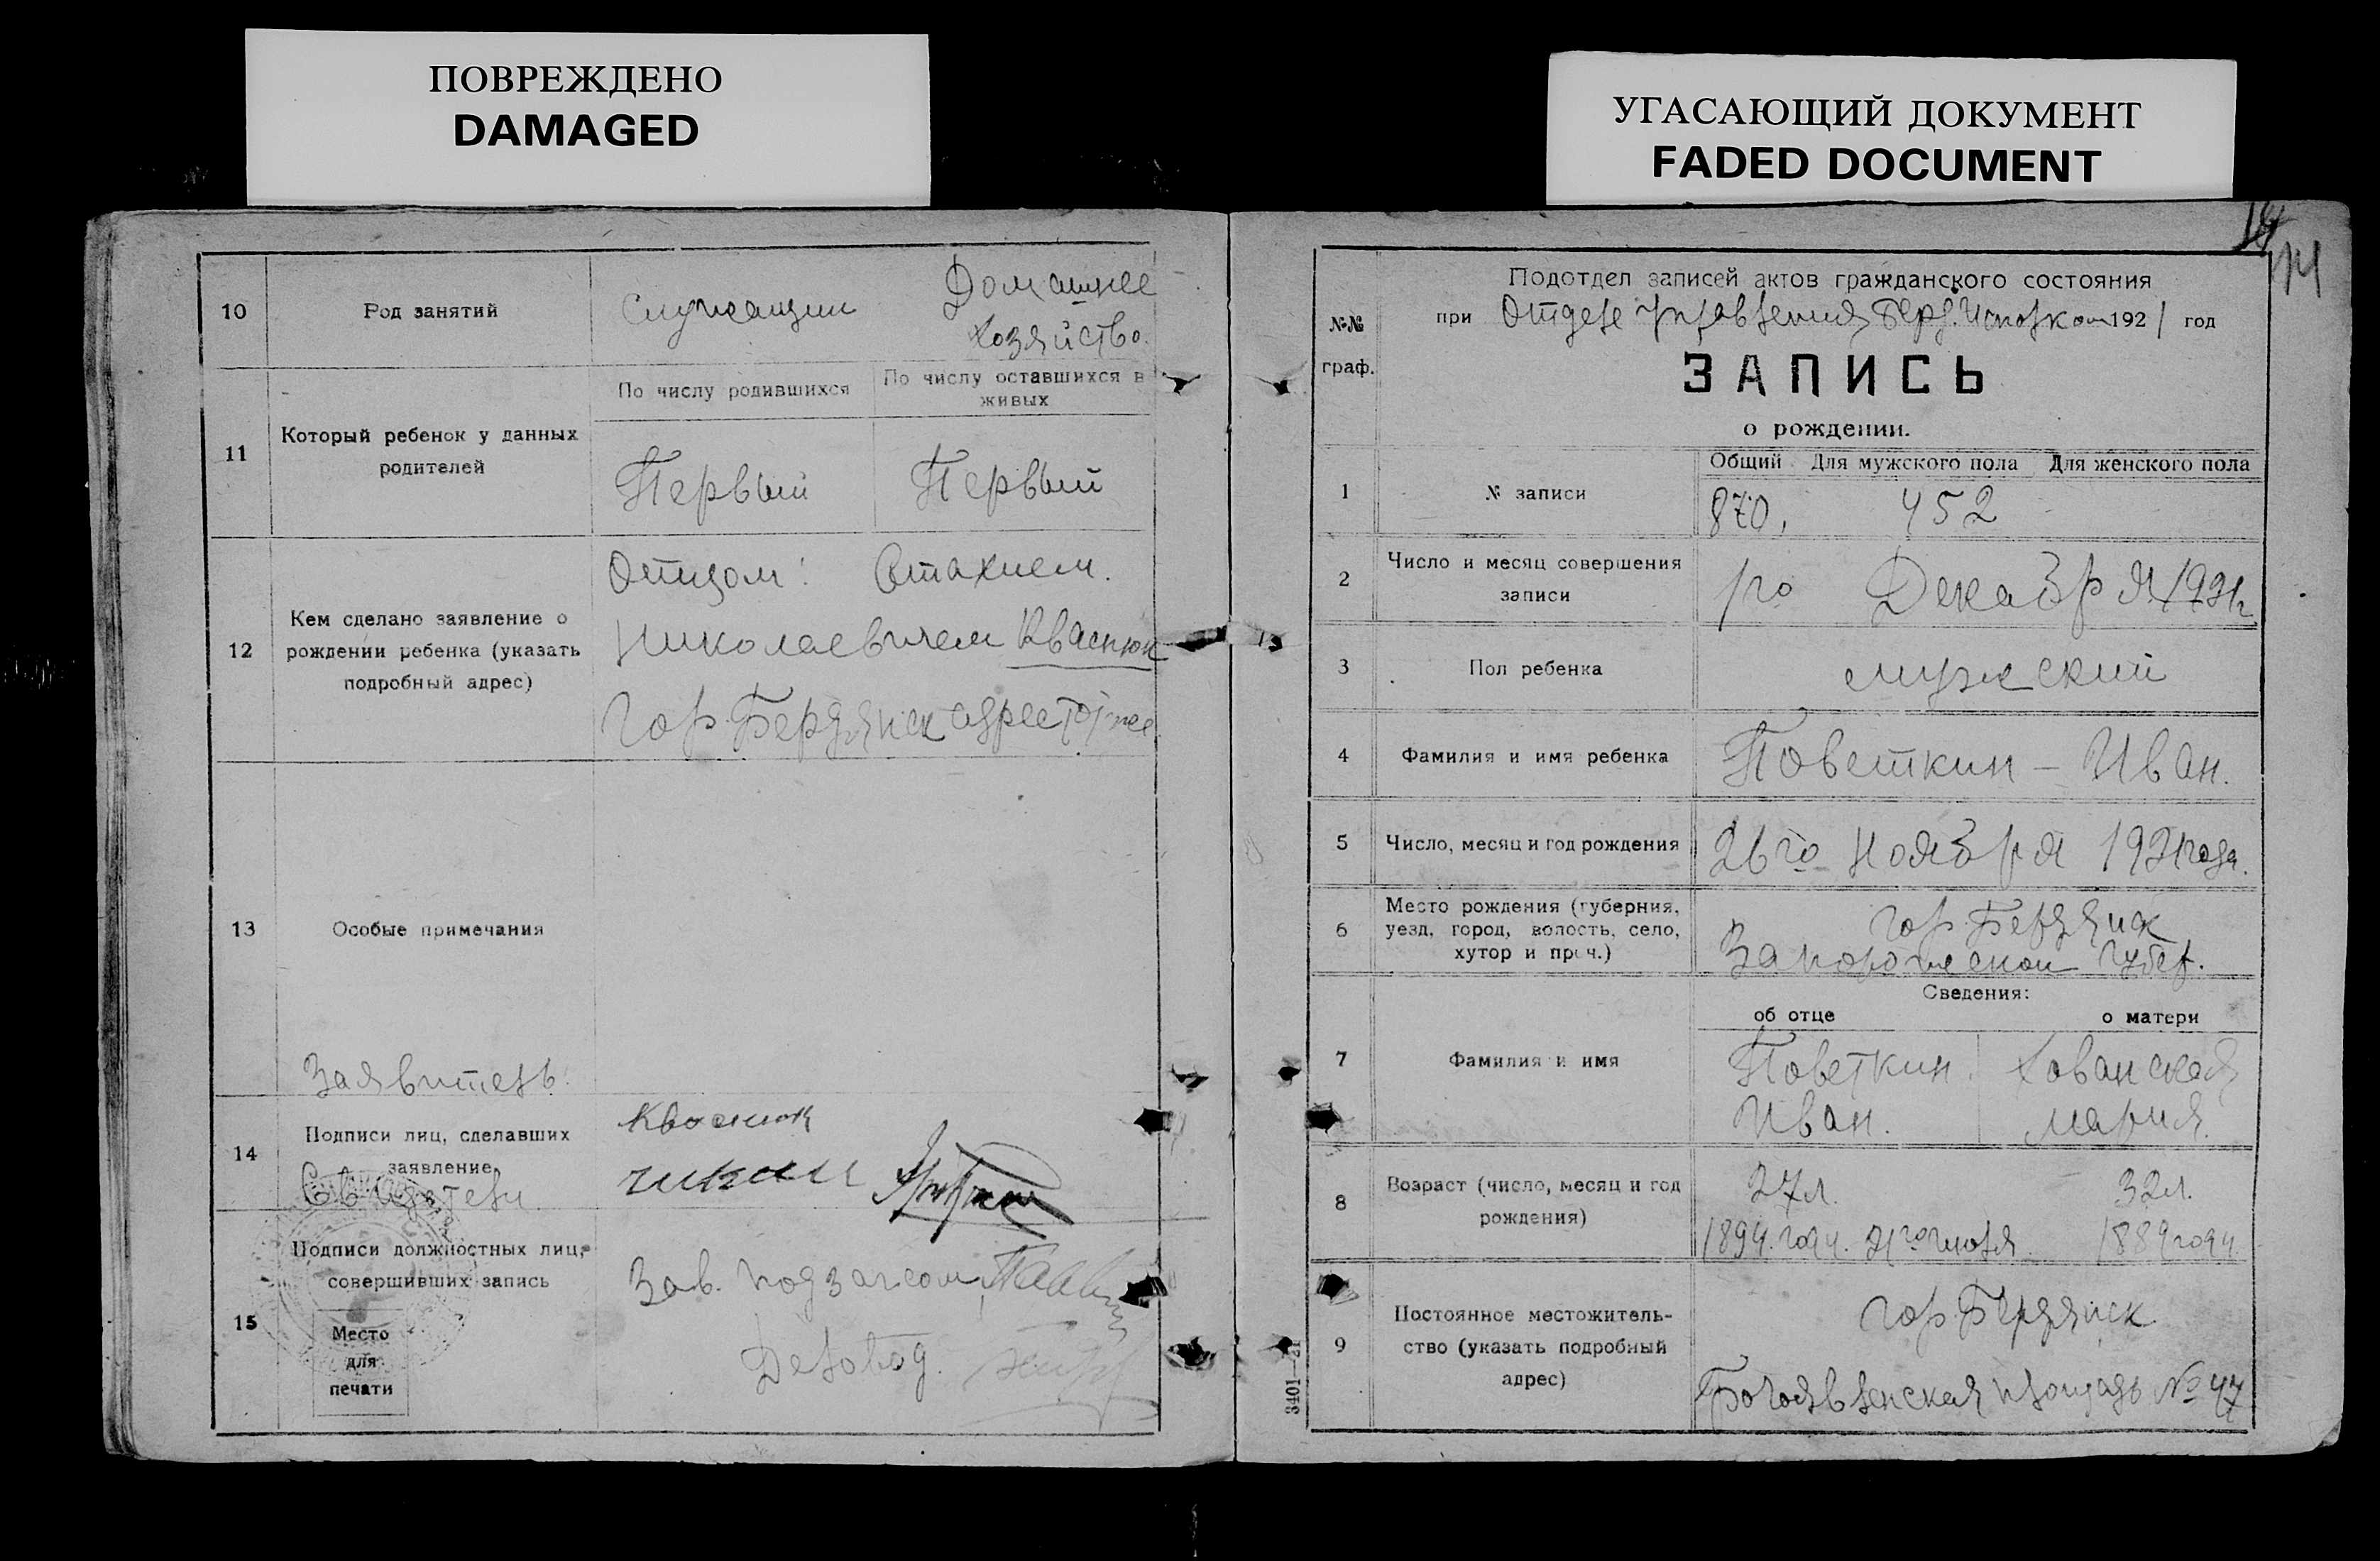 ПОВРЕЖДЕНО
DAMAGED
УГАСАЮЩИЙ ДОКУМЕНТ
FADED DOCUMENT
10
Род занятий
Служащий
Домашнее
Хозяйство.
11
Который ребенок у данных
родителей
По числу родившихся
По числу оставшихся в
живых
Первый
Первый
12
Кем сделано заявление о
рождении ребенка (указать
подробный адрес)
Отцом: Стахием.
Николаевичем Кваснюк
Гор. Бердянск адрес тот же
13
Особые примечания
Заявитель
14
Подписи лиц, сделавших
заявление
Свидетели
Кваснюк
15
Подписи должностных лиц,
совершивших запись
Место
для
печати
Зав. подзагсом
Деловод.
14
№№
граф.
Подотдел записей актов гражданского состояния
при Отделе Управления Берд. Исполкома 1921 год
ЗАПИСЬ
о рождении.
1
№ записи
Общий Для мужского пола Для женского пола
870, 452
2
Число и месяц совершения
записи
1го Декабря 1921г
3
Пол ребенка
мужский
4
Фамилия и имя ребенка
Поветкин – Иван.
5
Число, месяц и год рождения
26го Ноября 1921 года.
6
Место рождения (губерния,
уезд, город, волость, село,
хутор и проч.)
гор. Бердянск
Запорожской Губер.
7
Фамилия и имя
Сведения:
об отце
о матери
Поветкин. Хованская
Иван. Мария.
8
Возраст (число, месяц и год
рождения)
27л. 32л.
1894. году. 21го июля 1889 году
9
Постоянное местожитель-
ство (указать подробный
адрес)
гор. Бердянск
Богоявленская площадь № 47
3401—21